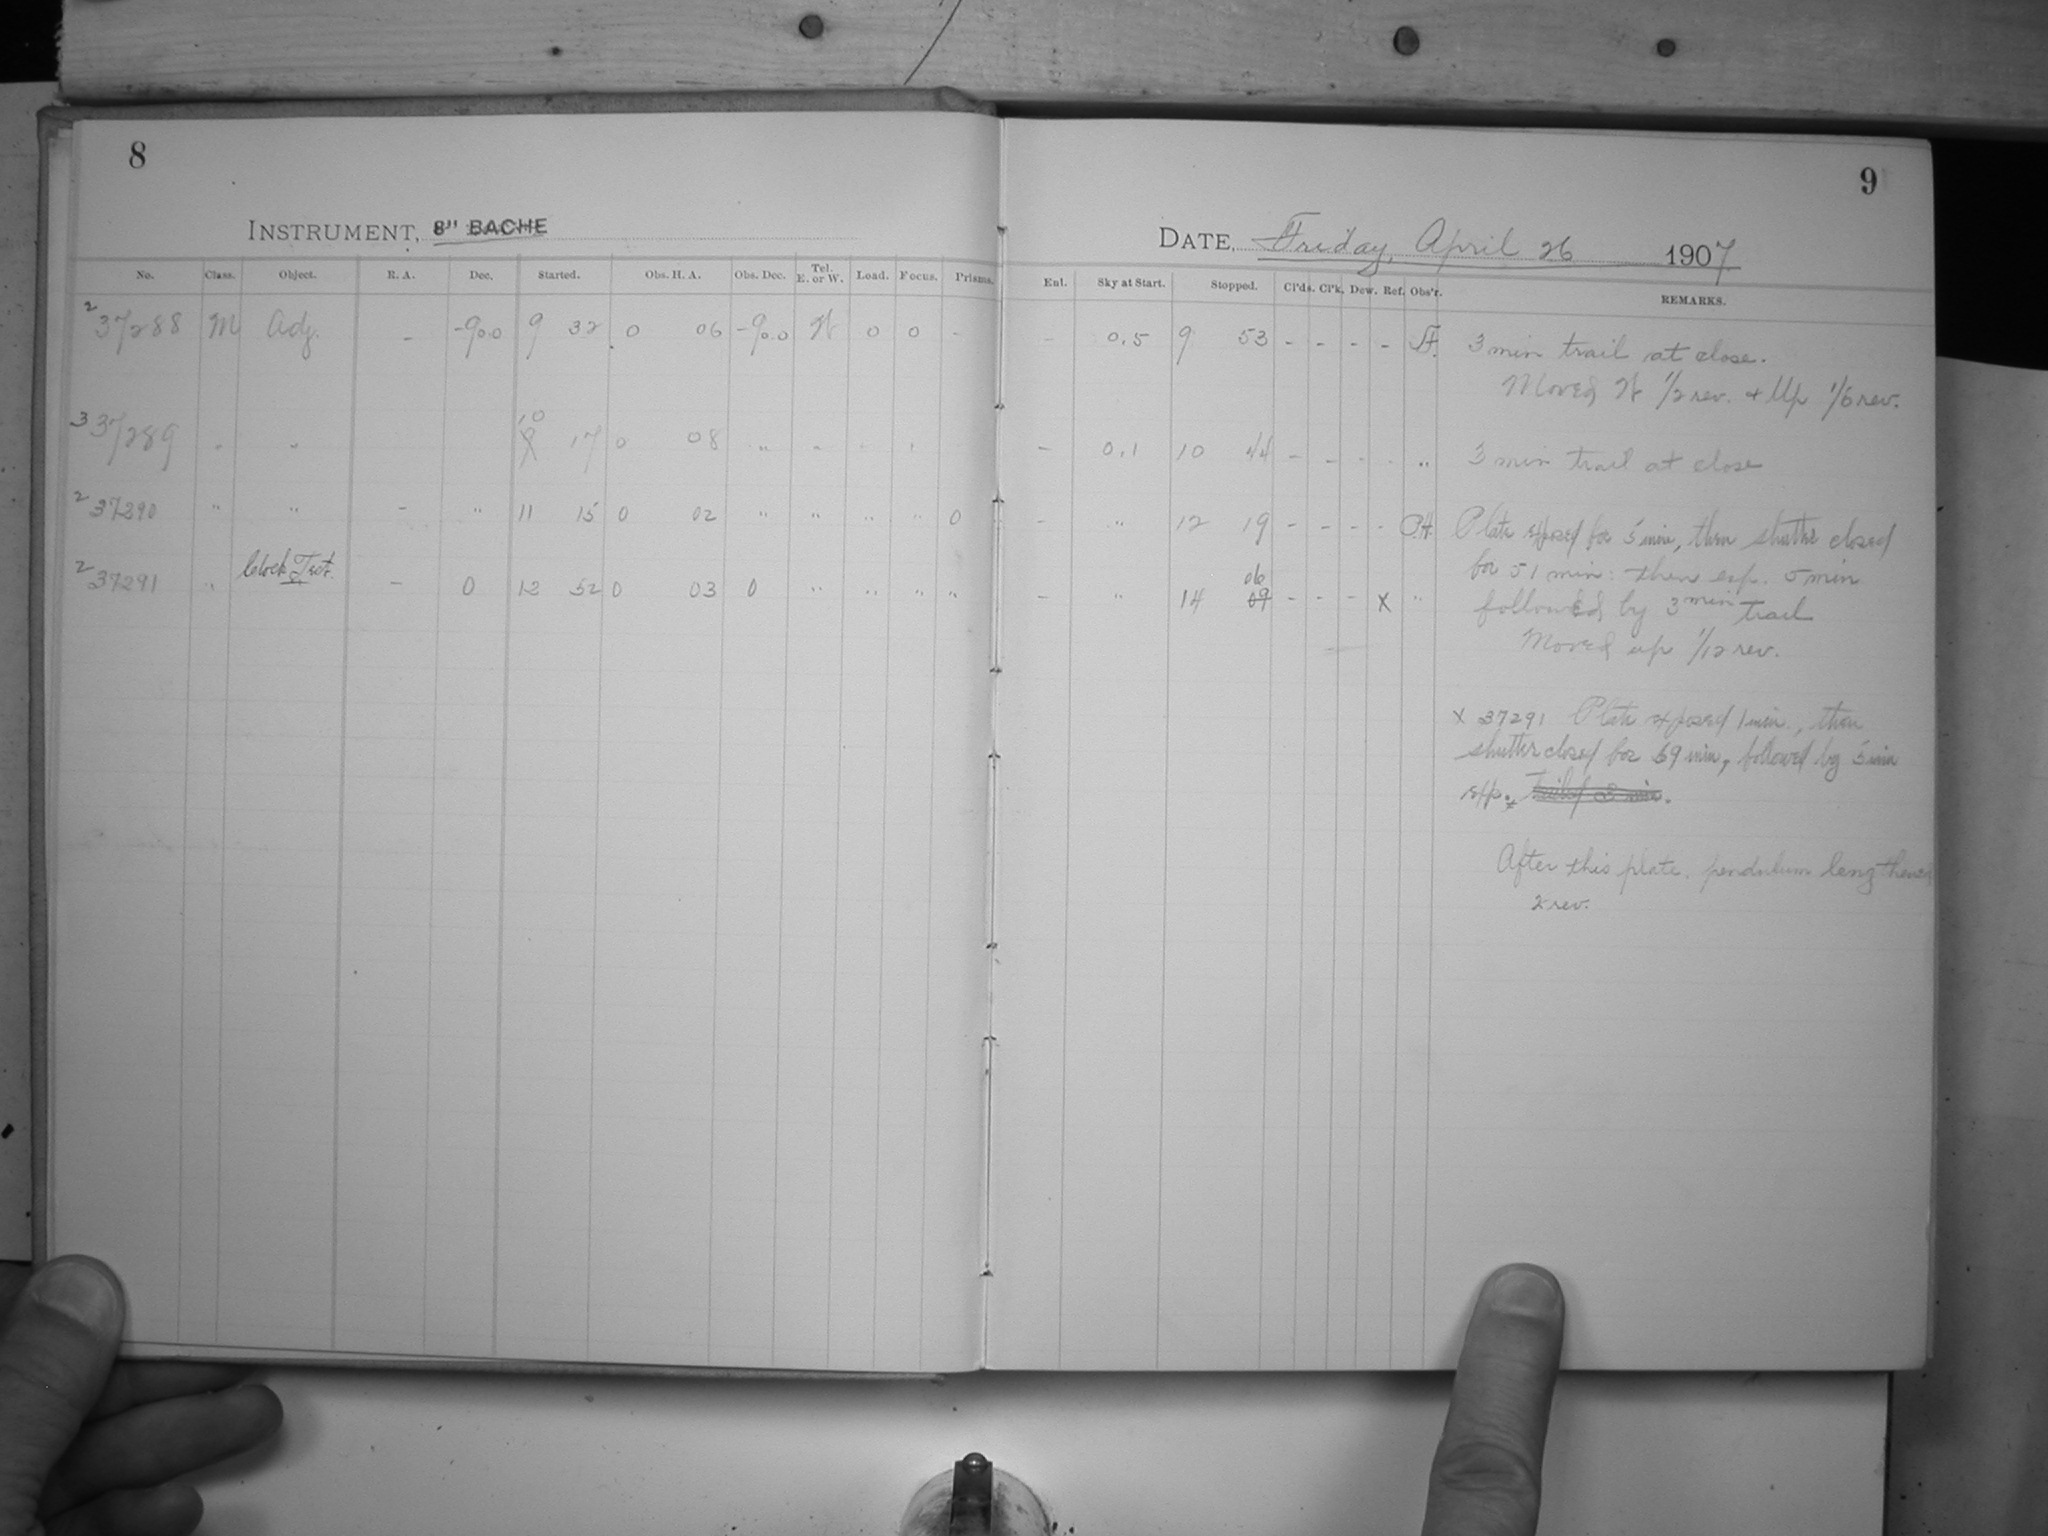 8
INSTRUMENT, 8" BACHE
No. Class. Object. R. A. Dec. Started. Obs. H. A. Obs. Dec. Tel. E. or W. Load. Focus. Prisms.
2 37288 M Adj. - -90.0 9 32 0 06 -90.0 W 0 0 -
3 37289 " " 10 9 17 0 08 " " " "
2 37290 " " - " 11 15 0 02 " " " " 0
2 37291 " Clock Test. - 0 12 52 0 03 0 " " " "
9
DATE, Friday, April 26 1907
Enl. Sky at Start. Stopped. Cl'ds. Cl'k. Dew. Ref. Obs'r. REMARKS.
- 0.5 9 53 - - - - 3 min trail at close.
Moved W 1/2 rev. + Up 1/6 rev.
- 0.1 10 44 - - - - " 3 min trail at close
- " 12 19 - - - - Plate exposed for 5 min, then shutter closed
for 51 min: then exp. 5 min
- " 14 06 09 - - - X " followed by 3 min trail
Moved up 1/12 rev.
X 37291 Plate exposed 1 min., then
shutter closed for 69 min, followed by 5 min
exp.
After this plate. pendulum lengthened
2 rev.